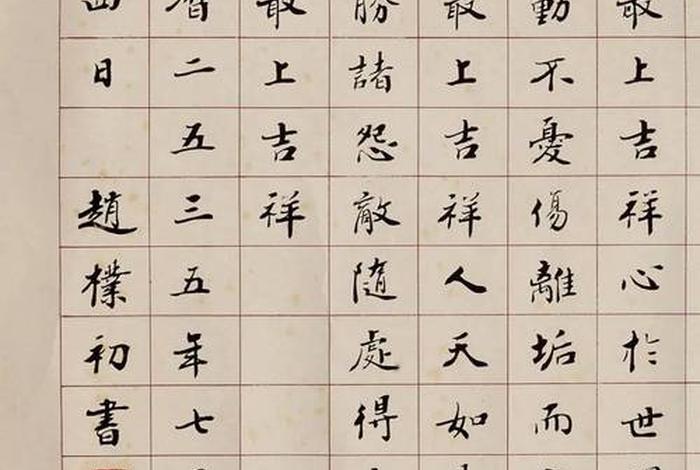 最上吉祥心於世
動不憂傷離垢而
最上吉祥人天如
勝諸怨敵隨處得
最上吉祥
二五三五年七
日 趙樸初書